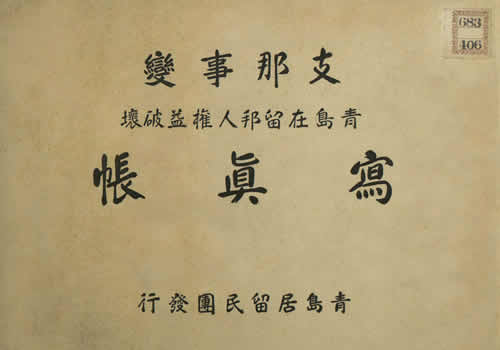 683
406
支那事變
青島在留邦人權益破壞
寫眞帳
青島居留民團發行